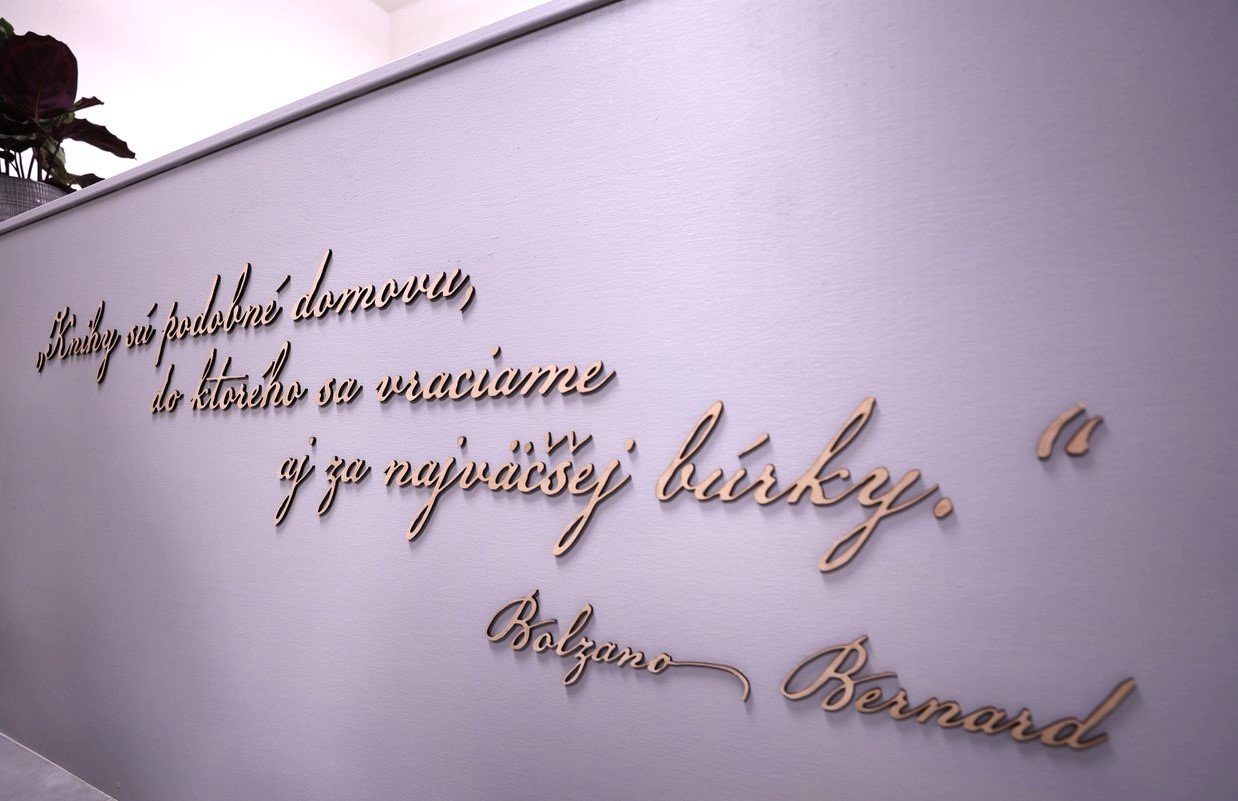 „Knihy sú podobné domovu,
do ktorého sa vraciame
aj za najväčšej búrky. “
Bolzano Bernard